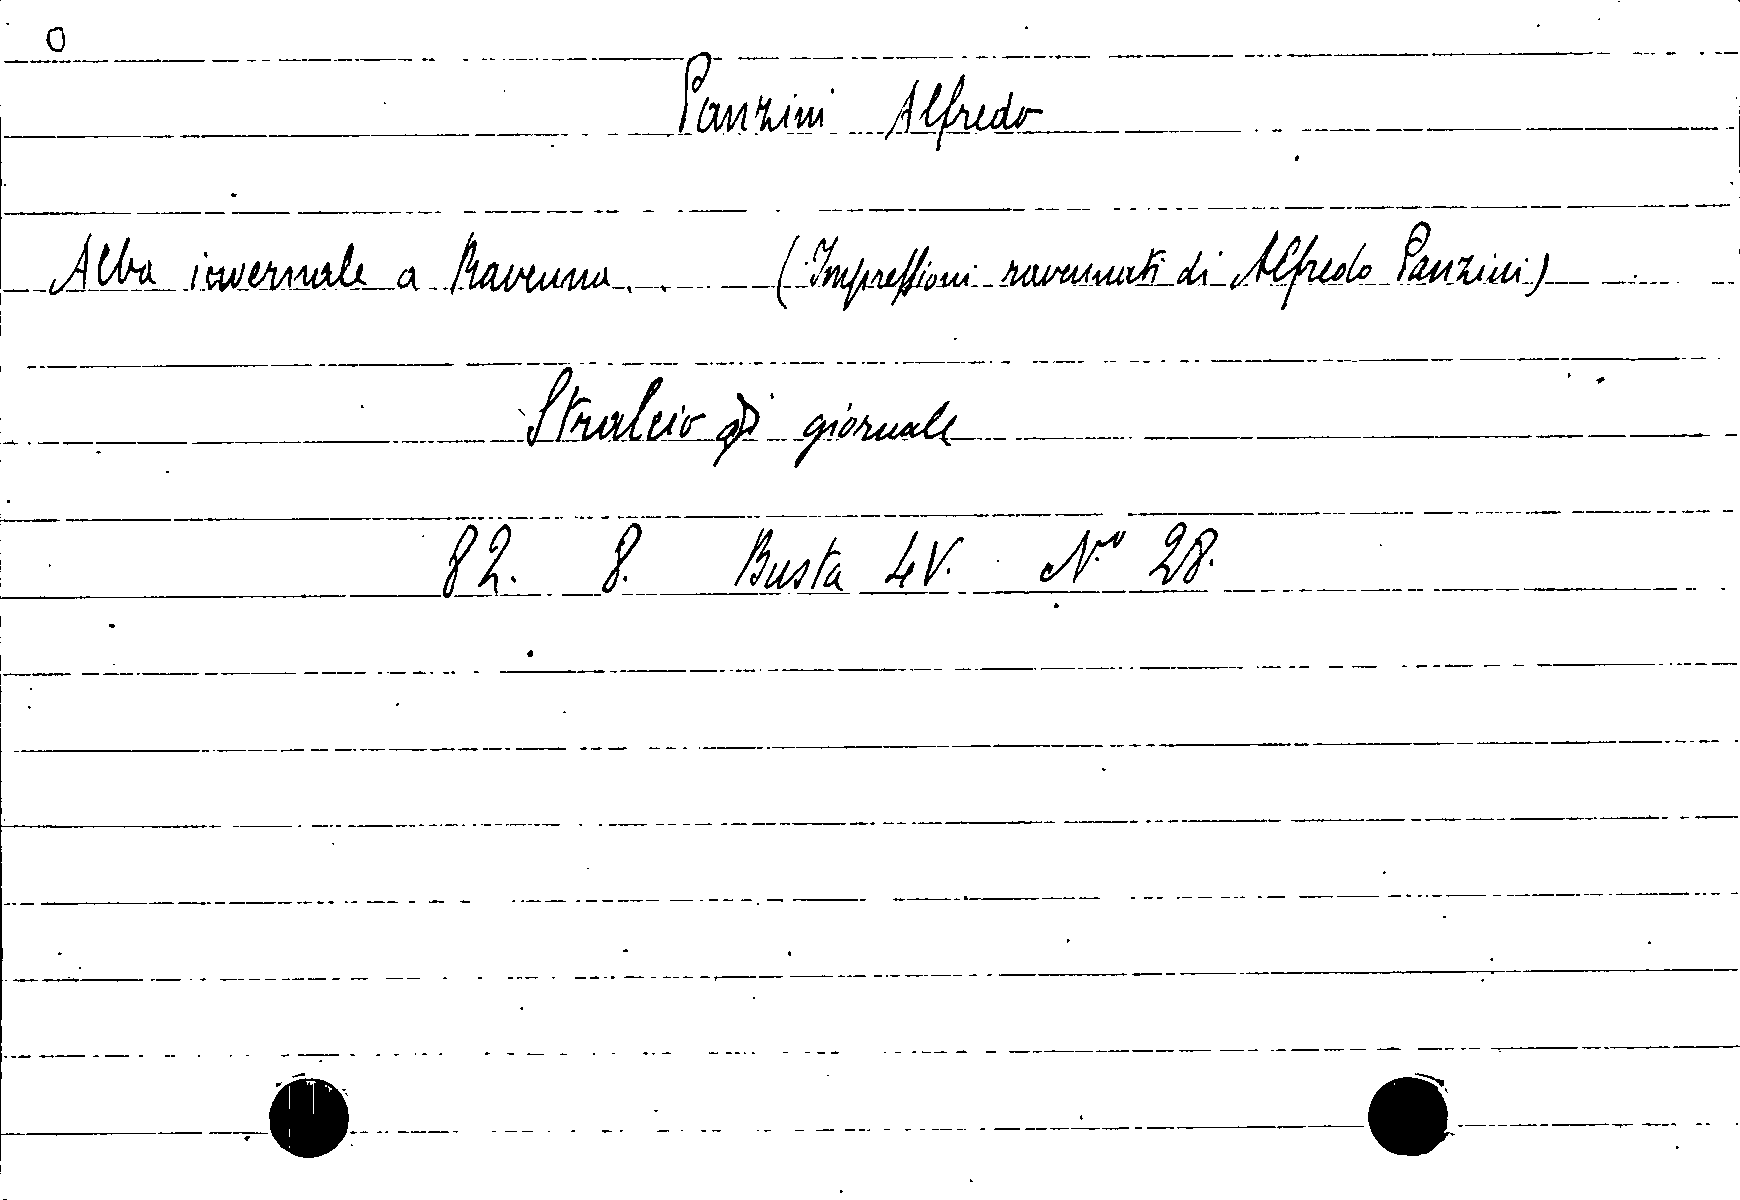 Panzini Alfredo
Alba invernale a Ravenna. (Impressioni ravennati di Alfredo Panzini)
Stralcio di giornale
82. 8. Busta 4V. N.º 28.